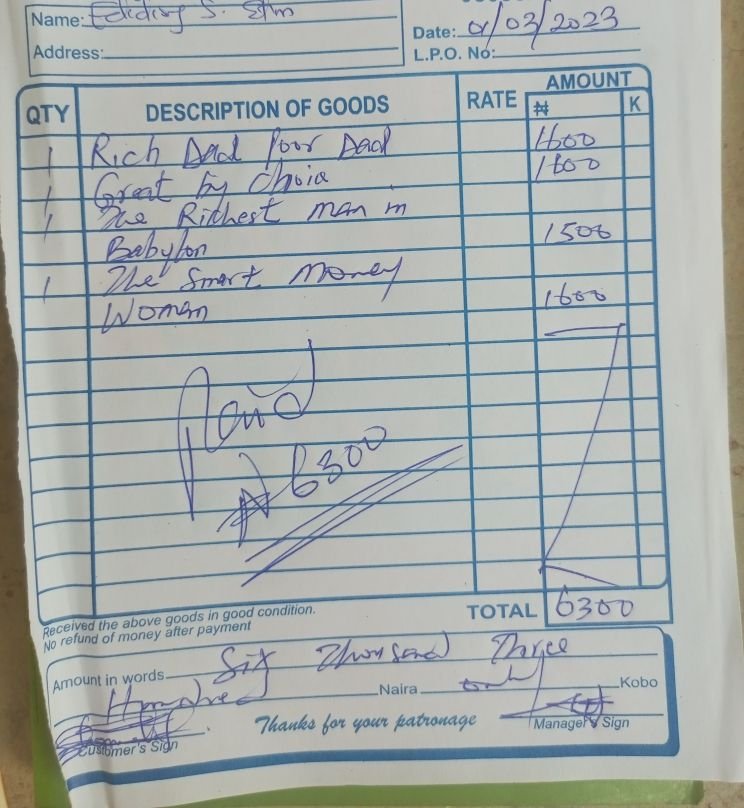 Name: Ediding S. Etim
Date: 01/03/2023
Address:
L.P.O. No:
QTY DESCRIPTION OF GOODS RATE AMOUNT
₦ K
1 Rich Dad Poor Dad 1600
1 Great by Choice 1600
1 The Richest man in
Babylon 1500
1 The Smart money
Woman 1600
Paid
₦6300
Received the above goods in good condition.
No refund of money after payment
TOTAL 6300
Amount in words Six Thousand Three
Hundred Naira only Kobo
Thanks for your patronage
Customer's Sign Manager's Sign